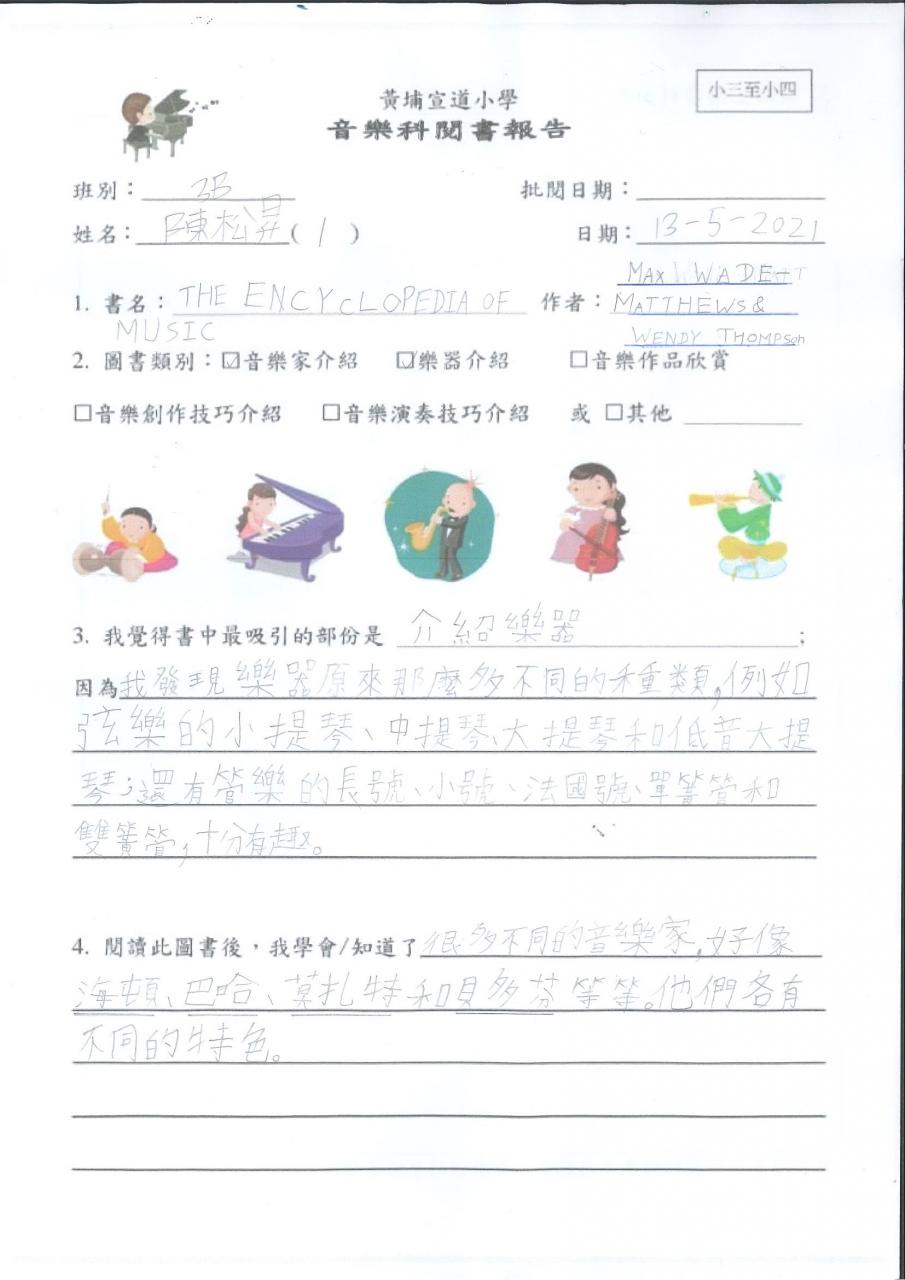 小三至小四
黃埔宣道小學
音樂科閱書報告
班別：3B 批閱日期：
姓名：陳松昇(1) 日期：13-5-2021
1. 書名：THE ENCYCLOPEDIA OF MUSIC 作者：MAX WADE-MATTHEWS & WENDY THOMPSON
2. 圖書類別：☑音樂家介紹 ☑樂器介紹 □音樂作品欣賞
□音樂創作技巧介紹 □音樂演奏技巧介紹 或 □其他
3. 我覺得書中最吸引的部份是 介紹樂器；
因為我發現樂器原來那麼多不同的種類,例如
弦樂的小提琴、中提琴、大提琴和低音大提
琴；還有管樂的長號、小號、法國號、單簧管和
雙簧管,十分有趣。
4. 閱讀此圖書後，我學會/知道了很多不同的音樂家,好像
海頓、巴哈、莫扎特和貝多芬等等。他們各有
不同的特色。